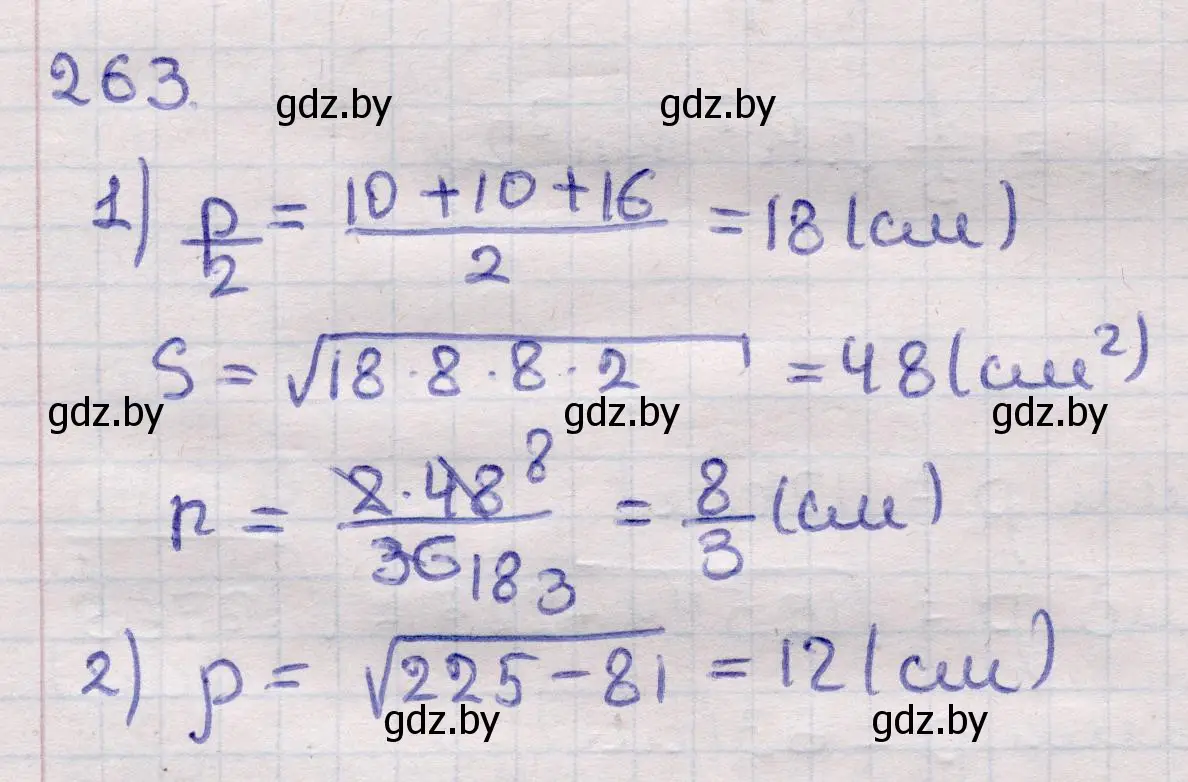 263.
gdz.by gdz.by
1) p/2 = (10 + 10 + 16)/2 = 18 (см)
S = √(18 · 8 · 8 · 2) = 48 (см²)
gdz.by gdz.by gdz.by
r = (2 · 48 8)/(36 18 3) = 8/3 (см)
2) p = √(225 - 81) = 12 (см)
gdz.by gdz.by